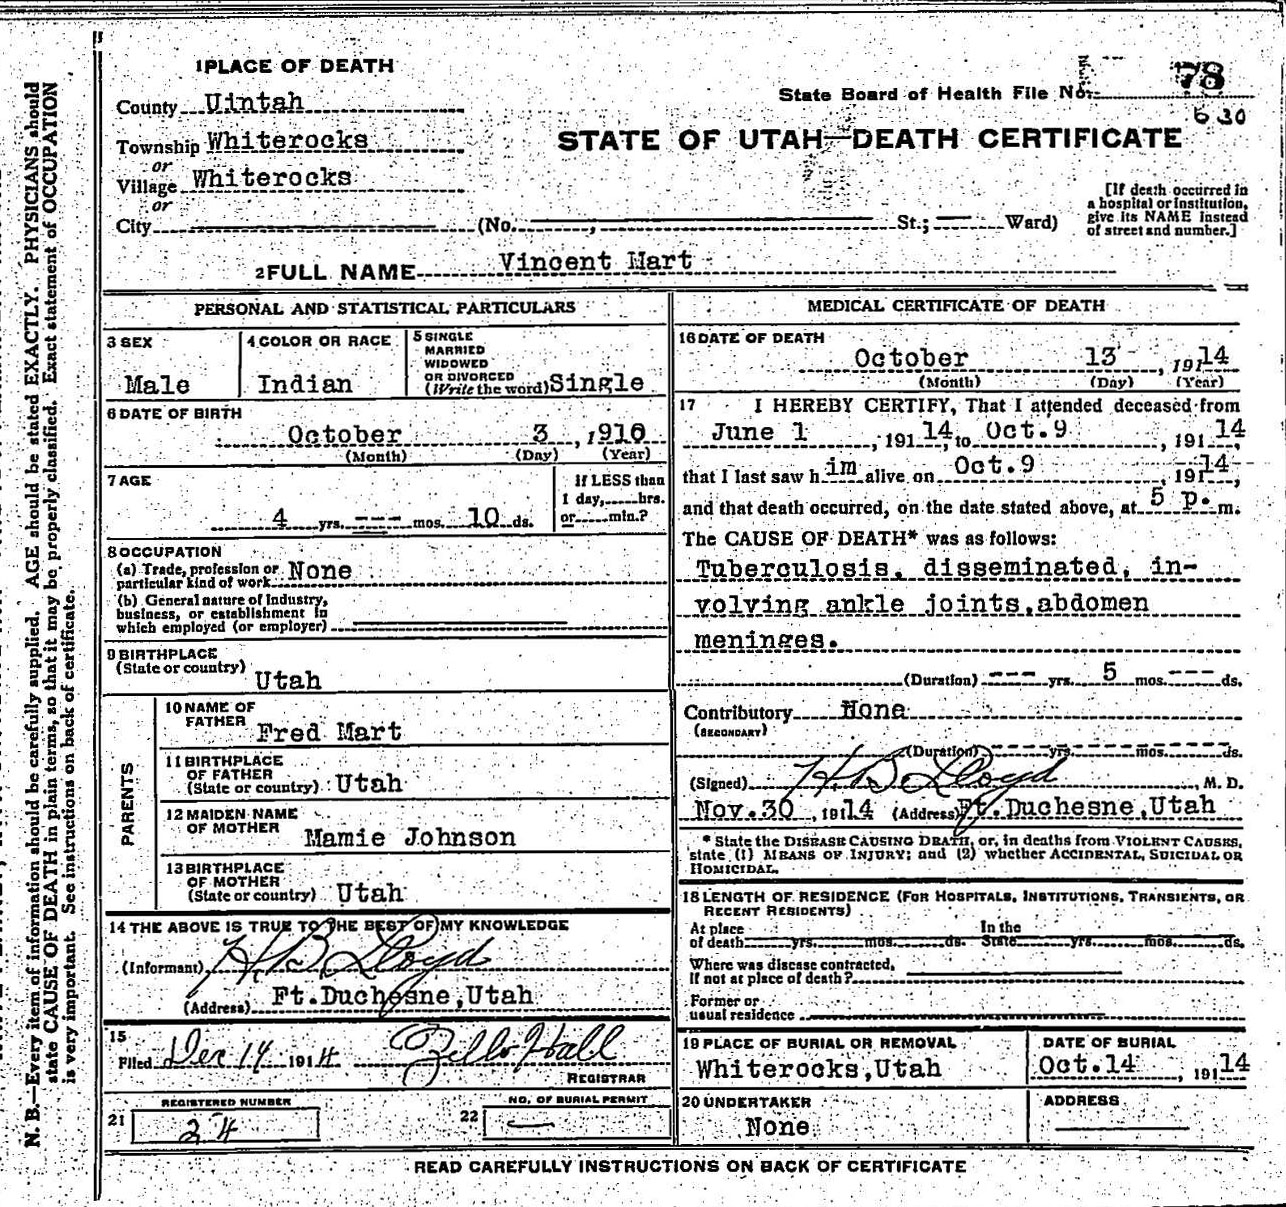 1 PLACE OF DEATH
County Uintah
Township Whiterocks
or
Village Whiterocks
or
City (No. , St.; Ward)
State Board of Health File No. 78
630
STATE OF UTAH—DEATH CERTIFICATE
[If death occurred in
a hospital or institution,
give its NAME instead
of street and number.]
2 FULL NAME Vincent Mart
PERSONAL AND STATISTICAL PARTICULARS
3 SEX
Male
4 COLOR OR RACE
Indian
5 SINGLE
MARRIED
WIDOWED
OR DIVORCED
(Write the word) Single
6 DATE OF BIRTH
October 3, 1910
(Month) (Day) (Year)
7 AGE
4 yrs. --- mos. 10 ds.
If LESS than
1 day,.....hrs.
or.....min.?
8 OCCUPATION
(a) Trade, profession or
particular kind of work None
(b) General nature of Industry,
business, or establishment in
which employed (or employer)
9 BIRTHPLACE
(State or country)
Utah
PARENTS
10 NAME OF
FATHER Fred Mart
11 BIRTHPLACE
OF FATHER
(State or country) Utah
12 MAIDEN NAME
OF MOTHER Mamie Johnson
13 BIRTHPLACE
OF MOTHER
(State or country) Utah
14 THE ABOVE IS TRUE TO THE BEST OF MY KNOWLEDGE
(Informant) H. B. Lloyd
(Address) Ft. Duchesne, Utah
15
Filed Dec 14 1914 Hall
REGISTRAR
21 REGISTERED NUMBER
24
22 NO. OF BURIAL PERMIT
MEDICAL CERTIFICATE OF DEATH
16 DATE OF DEATH
October 13, 1914
(Month) (Day) (Year)
17 I HEREBY CERTIFY, That I attended deceased from
June 1, 19114, to Oct. 9, 19114
that I last saw h im alive on Oct. 9, 19114,
and that death occurred, on the date stated above, at 5 p. m.
The CAUSE OF DEATH* was as follows:
Tuberculosis, disseminated, in-
volving ankle joints, abdomen
meninges.
(Duration) --- yrs. 5 mos. --- ds.
Contributory None
(SECONDARY)
(Duration) --- yrs. --- mos. --- ds.
(Signed) H B Lloyd, M. D.
Nov. 30, 19114 (Address) Ft. Duchesne, Utah
* State the DISEASE CAUSING DEATH, or, in deaths from VIOLENT CAUSES,
state (1) MEANS OF INJURY; and (2) whether ACCIDENTAL, SUICIDAL OR
HOMICIDAL.
18 LENGTH OF RESIDENCE (FOR HOSPITALS, INSTITUTIONS, TRANSIENTS, OR
RECENT RESIDENTS)
At place In the
of death yrs. mos. ds. State yrs. mos. ds.
Where was disease contracted,
If not at place of death?
Former or
usual residence
19 PLACE OF BURIAL OR REMOVAL
Whiterocks, Utah
DATE OF BURIAL
Oct. 14, 19114
20 UNDERTAKER
None
ADDRESS
READ CAREFULLY INSTRUCTIONS ON BACK OF CERTIFICATE
N. B.—Every item of information should be carefully supplied. AGE should be stated EXACTLY. PHYSICIANS should
state CAUSE OF DEATH in plain terms, so that it may be properly classified. Exact statement of OCCUPATION
is very important. See instructions on back of certificate.